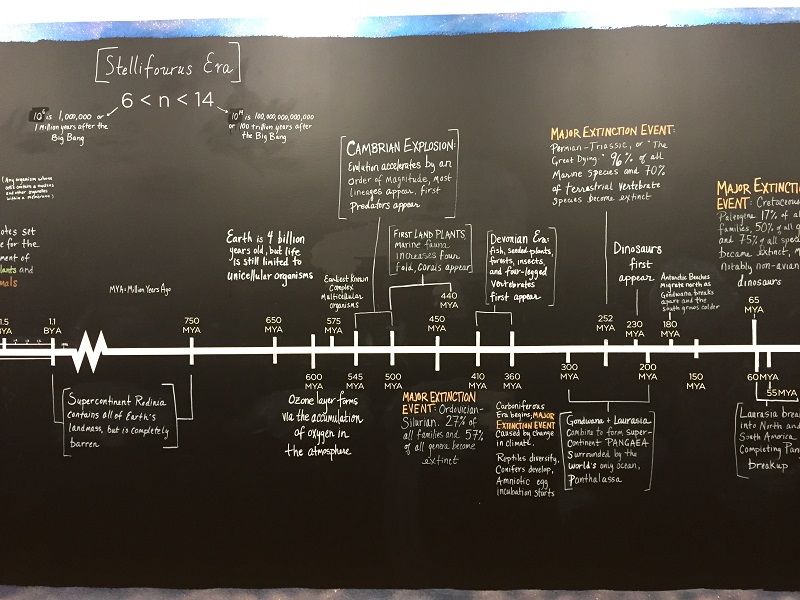 [Stelliforous Era]
6 < n < 14
10⁶ is 1,000,000 or
1 Million years after the
Big Bang
10¹⁴ is 100,000,000,000,000
or 100 trillion years after
the Big Bang
(Any organism whose
cells contain a nucleus
and other organelles
within a membrane)
otes set
e for the
ment of
lants and
mals
MYA = Million Years Ago
Earth is 4 billion
years old, but life
is still limited to
unicellular organisms
Earliest Known
Complex
Multicellular
organisms
CAMBRIAN EXPLOSION:
Evolution accelerates by an
order of Magnitude, most
lineages appear, first
Predators appear
FIRST LAND PLANTS,
marine fauna
increases four
fold, corals appear
Devonian Era:
fish, seeded-plants,
forests, insects,
and four-legged
vertebrates
first appear
MAJOR EXTINCTION EVENT:
Permian-Triassic, or "The
Great Dying." 96% of all
Marine Species and 70%
of terrestrial vertebrate
species become extinct
Dinosaurs
first
appear
Antarctic Beeches
Migrate north as
Gondwana breaks
apart and the
south grows colder
MAJOR EXTINCTI
EVENT: Cretaceous
Paleogene 17% of al
families, 50% of all g
and 75% of all spec
became extinct, m
notably non-avian
dinosaurs
1.5
BYA
1.1
BYA
750
MYA
650
MYA
575
MYA
600
MYA
545
MYA
500
MYA
440
MYA
450
MYA
410
MYA
360
MYA
300
MYA
252
MYA
230
MYA
200
MYA
180
MYA
150
MYA
65
MYA
60MYA
55MYA
Supercontinent Rodinia
contains all of Earth's
landmass, but is completely
barren
Ozone layer forms
via the accumulation
of oxygen in
the atmosphere
MAJOR EXTINCTION
EVENT: Ordovician-
Silurian. 27% of
all families and 57%
of all genera become
extinct
Carboniferous
Era begins; MAJOR
EXTINCTION EVENT
caused by change
in climate.
Reptiles diversity,
Conifers develop,
Amniotic egg
incubation starts
Gondwana + Laurasia
Combine to form super-
continent PANGAEA
Surrounded by the
world's only ocean,
Panthalassa
Laurasia brea
into North and
South America
Completing Pan
breakup